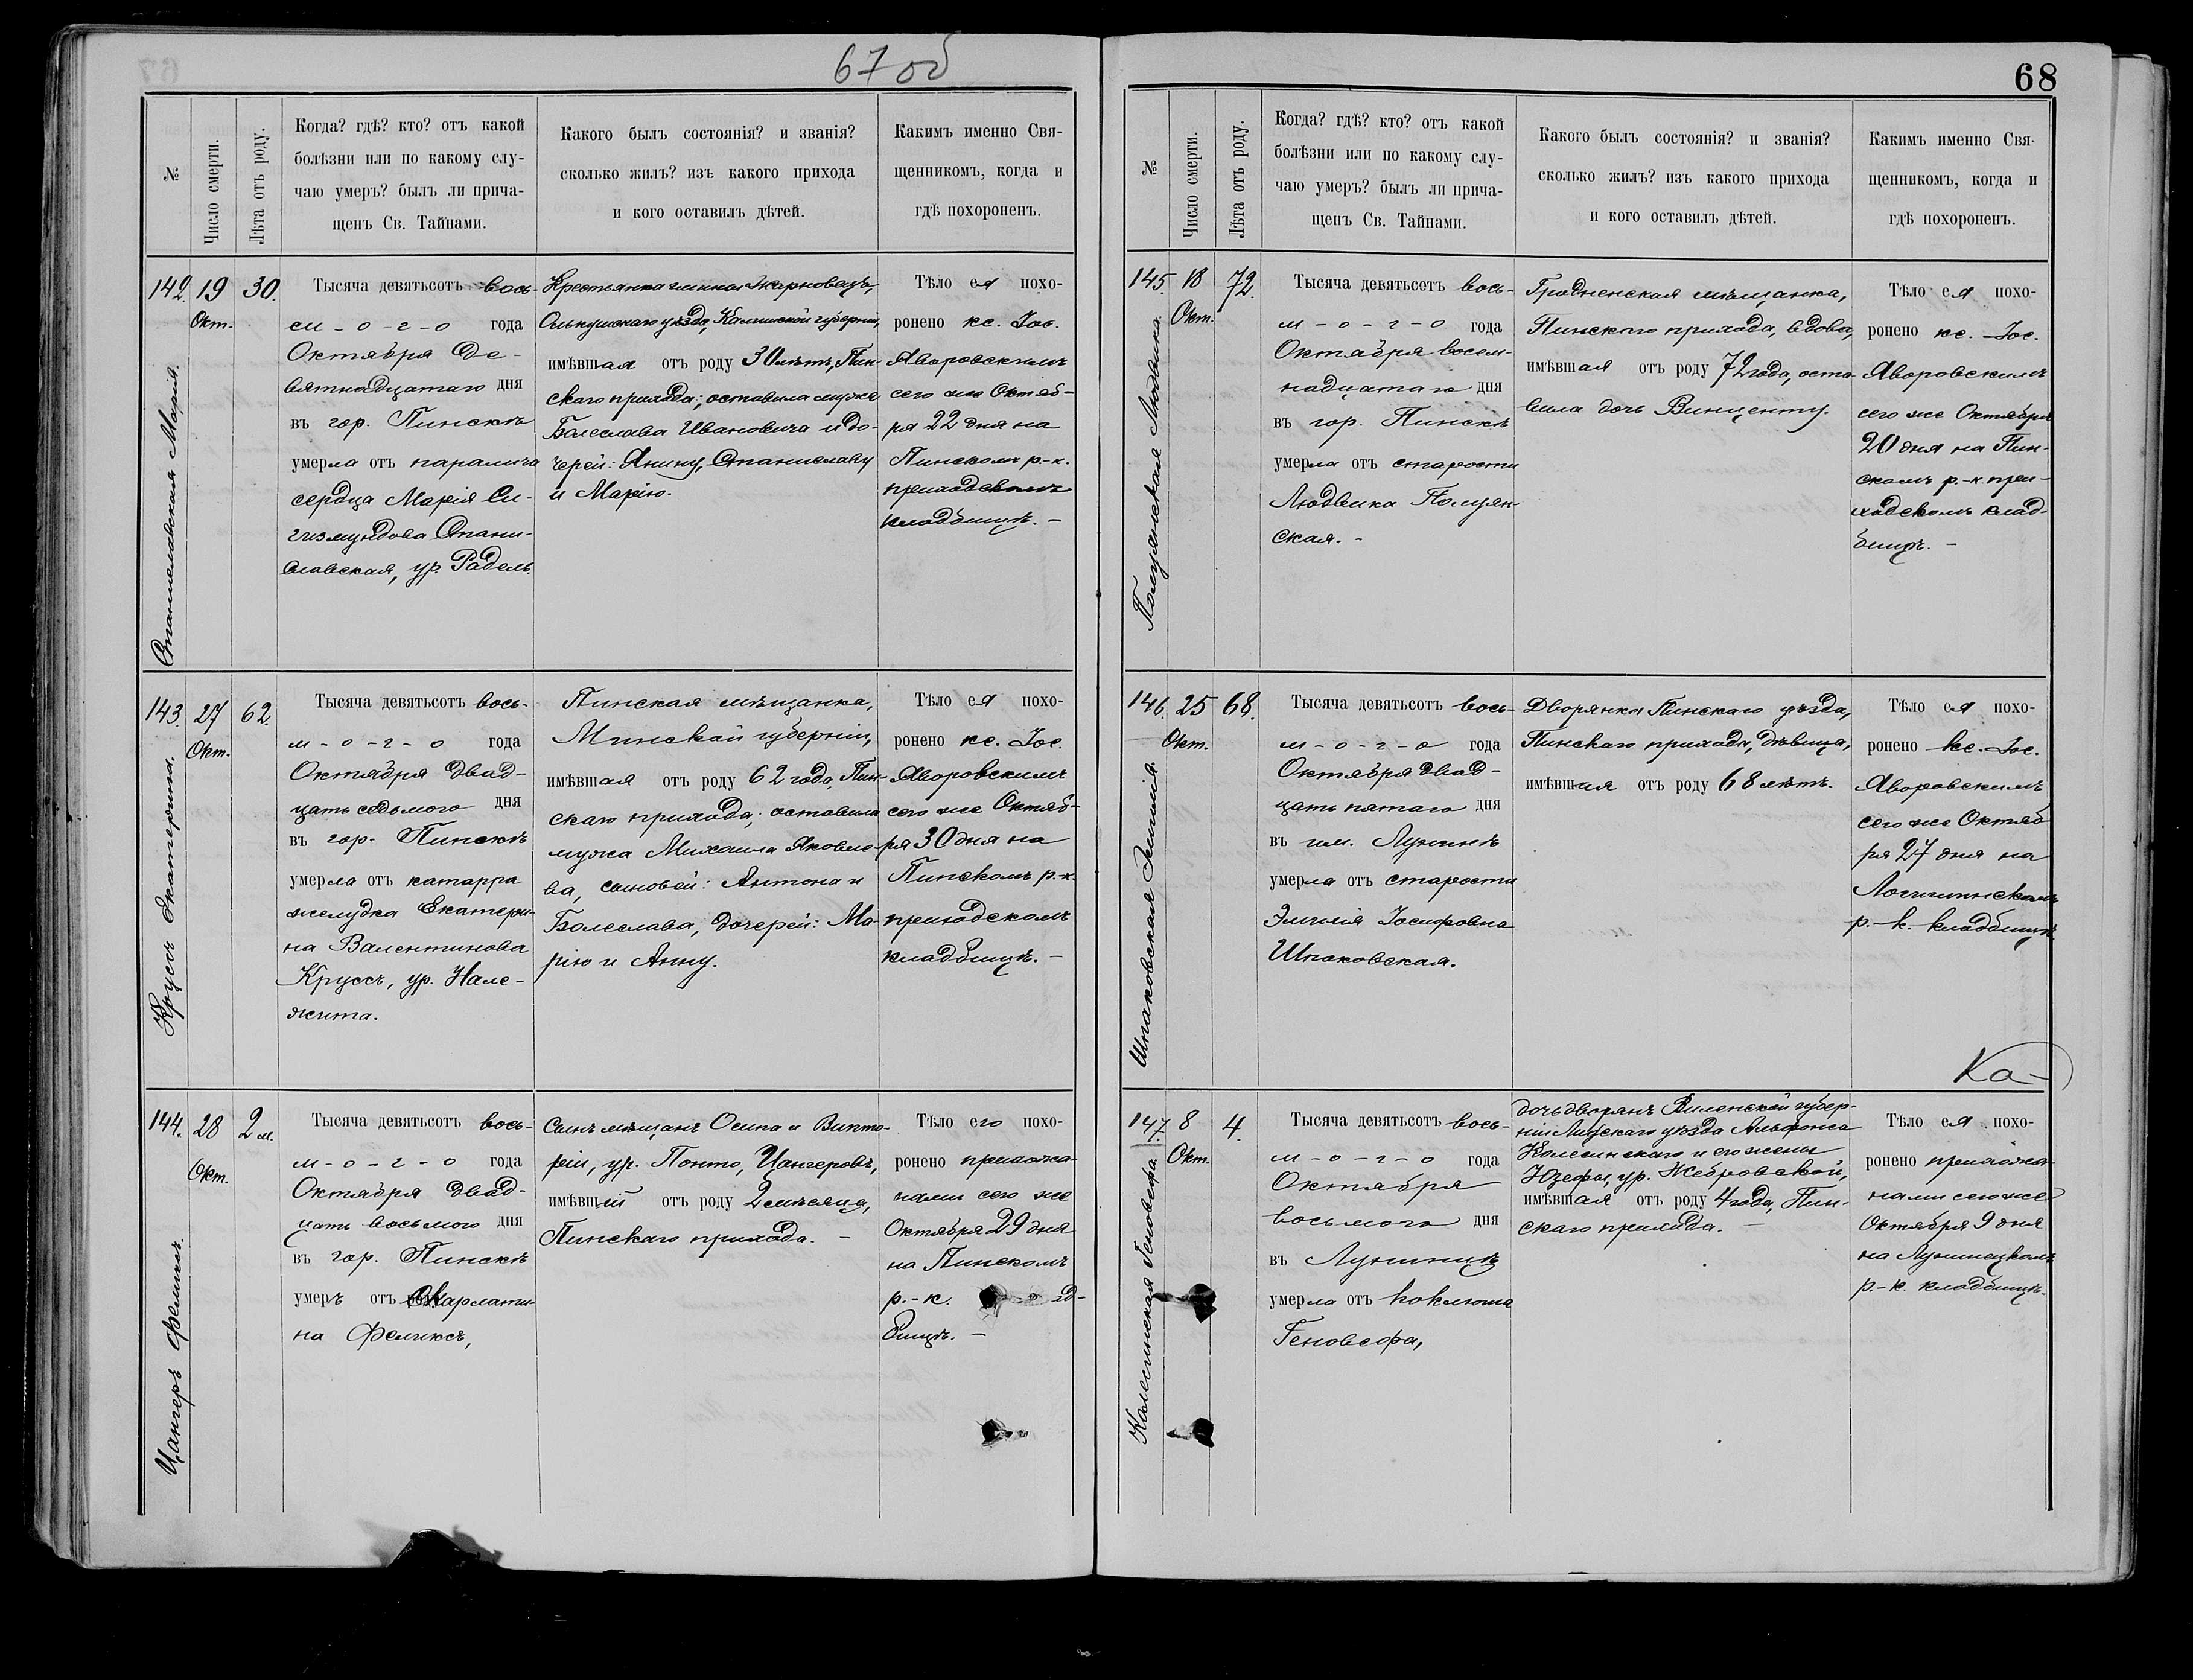 67 об
№
Число смерти.
Лѣта отъ роду.
Когда? гдѣ? кто? отъ какой
болѣзни или по какому слу-
чаю умеръ? былъ ли прича-
щенъ Св. Тайнами.
Какого былъ состоянія? и званія?
сколько жилъ? изъ какого прихода
и кого оставилъ дѣтей.
Какимъ именно Свя-
щенникомъ, когда и
гдѣ похороненъ.
142.
19
Окт.
30.
Станиславская Марія.
Тысяча девятьсотъ вось-
м-о-г-о года
Октября де-
вятнадцатаго дня
въ гор. Пинскѣ
умерла отъ паралича
сердца Марія Си-
гизмундова Стани-
славская, ур. Радель.
Крестьянка гмины Жарновацъ,
Олькушскаго уѣзда, губерніи,
имѣвшая отъ роду 30 лѣтъ, Пин-
скаго прихода; оставила мужа
Болеслава Ивановича и до-
черей: Янину, Станиславу
и Марію.
Тѣло ея похо-
ронено кс. Іос.
Яворовскимъ
сего же Октяб-
ря 22 дня на
Пинскомъ р.-к.
приходскомъ
кладбищѣ. -
143.
27
Окт.
62.
Круссъ Екатерина.
Тысяча девятьсотъ вось-
м-о-г-о года
Октября двад-
цать седьмого дня
въ гор. Пинскѣ
умерла отъ катарра
желудка Екатери-
на Валентинова
Круссъ, ур. Нале-
жита.
Пинская мѣщанка,
Минской губерніи,
имѣвшая отъ роду 62 года, Пин-
скаго прихода; оставила
мужа Михаила Яковле-
ва, сыновей: Антона и
Болеслава, дочерей: Ма-
рію и Анну.
Тѣло ея похо-
ронено кс. Іос.
Яворовскимъ
сего же Октяб-
ря 30 дня на
Пинскомъ р.-к.
приходскомъ
кладбищѣ. -
144.
28
Окт.
2 м.
Цангеръ Феликсъ.
Тысяча девятьсотъ вось-
м-о-г-о года
Октября двад-
цать восьмого дня
въ гор. Пинскѣ
умеръ отъ скарлати-
на Феликсъ,
Сынъ мѣщанъ Осипа и Викто-
ріи, ур. Понто, Цангеровъ,
имѣвшій отъ роду 2 мѣсяца,
Пинскаго прихода. -
Тѣло его похо-
ронено прихожа-
нами сего же
Октября 29 дня
на Пинскомъ
р.-к.
бищѣ. -
68
№
Число смерти.
Лѣта отъ роду.
Когда? гдѣ? кто? отъ какой
болѣзни или по какому слу-
чаю умеръ? былъ ли прича-
щенъ Св. Тайнами.
Какого былъ состоянія? и званія?
сколько жилъ? изъ какого прихода
и кого оставилъ дѣтей.
Какимъ именно Свя-
щенникомъ, когда и
гдѣ похороненъ.
145.
18
Окт.
72.
Полуянская Людвика.
Тысяча девятьсотъ вось-
м-о-г-о года
Октября восем-
надцатаго дня
въ гор. Пинскѣ
умерла отъ старости
Людвика Полуян-
ская. -
Гродненская мѣщанка,
Пинскаго прихода, вдова,
имѣвшая отъ роду 72 года, оста-
вила дочь Винценту.
Тѣло ея похо-
ронено кс. Іос.
Яворовскимъ
сего же Октября
20 дня на Пин-
скомъ р.-к. при-
ходскомъ клад-
бищѣ. -
146.
25
Окт.
68.
Шпаковская Эмилія.
Тысяча девятьсотъ вось-
м-о-г-о года
Октября двад-
цать пятаго дня
въ им. Лунинѣ
умерла отъ старости
Эмилія Іосифовна
Шпаковская.
Дворянка Пинскаго уѣзда,
Пинскаго прихода, дѣвица,
имѣвшая отъ роду 68 лѣтъ.
Тѣло ея похо-
ронено кс. Іос.
Яворовскимъ
сего же Октяб
ря 27 дня на
Логишинскомъ
р.-к. кладбищѣ.
Ка-
147.
8
Окт.
4.
Колесинская Геновефа.
Тысяча девятьсотъ вось-
м-о-г-о года
Октября
восьмого дня
въ Лунинцѣ
умерла отъ коклюша
Геновефа,
дочь дворянъ Виленской губер-
ніи Лидскаго уѣзда Альфонса
Колесинскаго и его жены
Юзефы, ур. Жебровской,
имѣвшая отъ роду 4 года, Пин-
скаго прихода. -
Тѣло ея похо-
ронено прихожа-
нами сего же
Октября 9 дня
на Лунинецкомъ
р.-к. кладбищѣ.